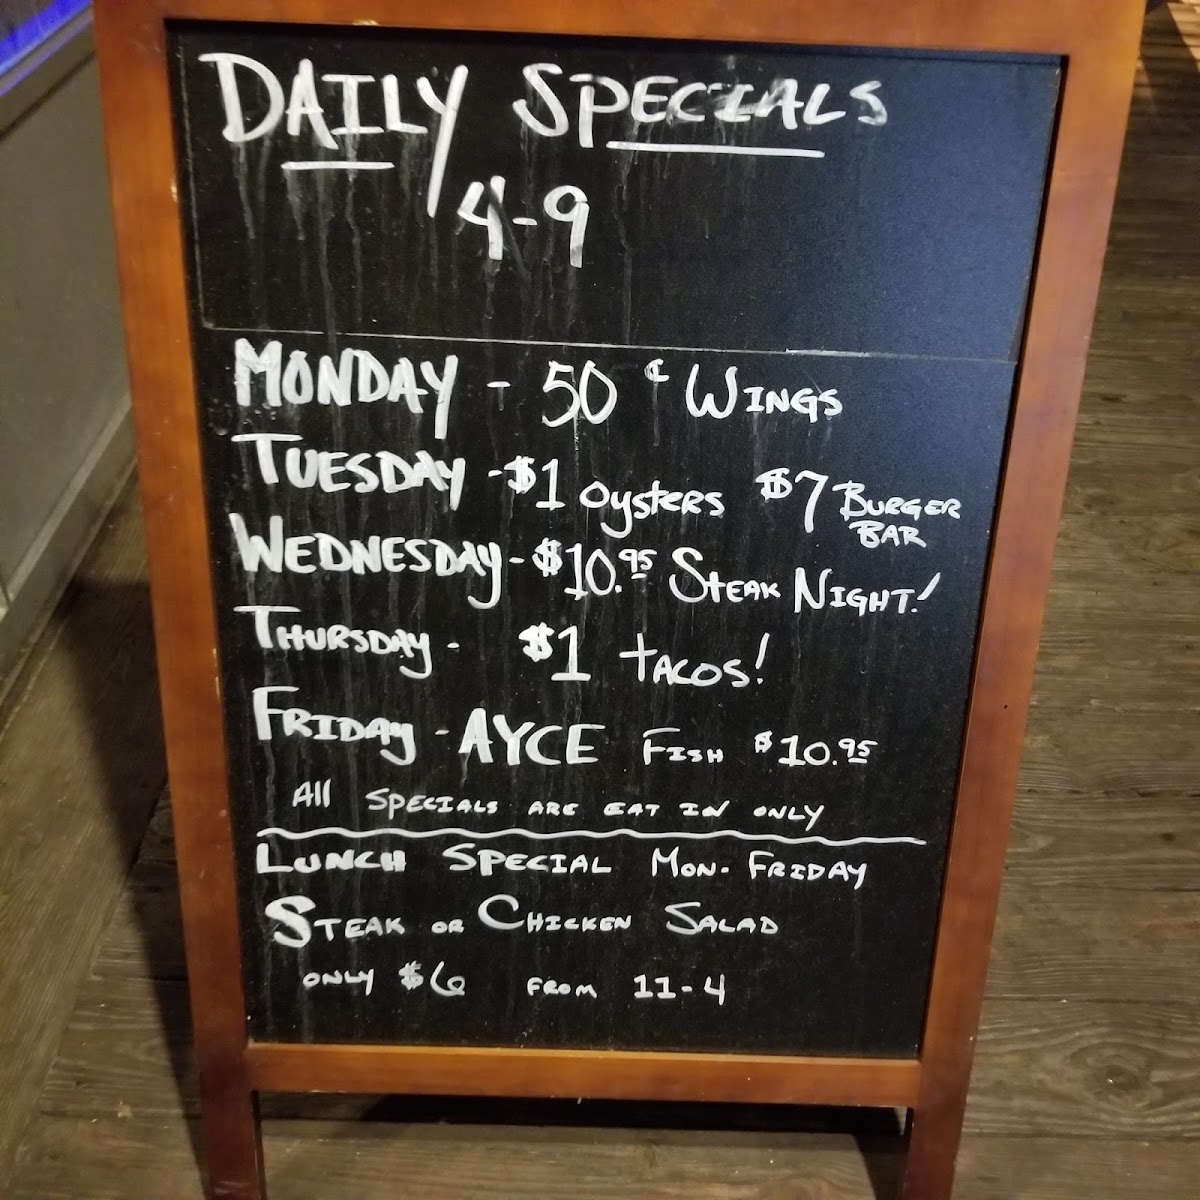 DAILY SPECIALS
4-9
MONDAY - 50 ¢ WINGS
TUESDAY - $1 OYSTERS $7 BURGER BAR
WEDNESDAY - $10.95 STEAK NIGHT!
THURSDAY - $1 TACOS!
FRIDAY - AYCE FISH $10.95
All SPECIALS ARE EAT IN ONLY
LUNCH SPECIAL MON. FRIDAY
STEAK OR CHICKEN SALAD
ONLY $6 FROM 11-4